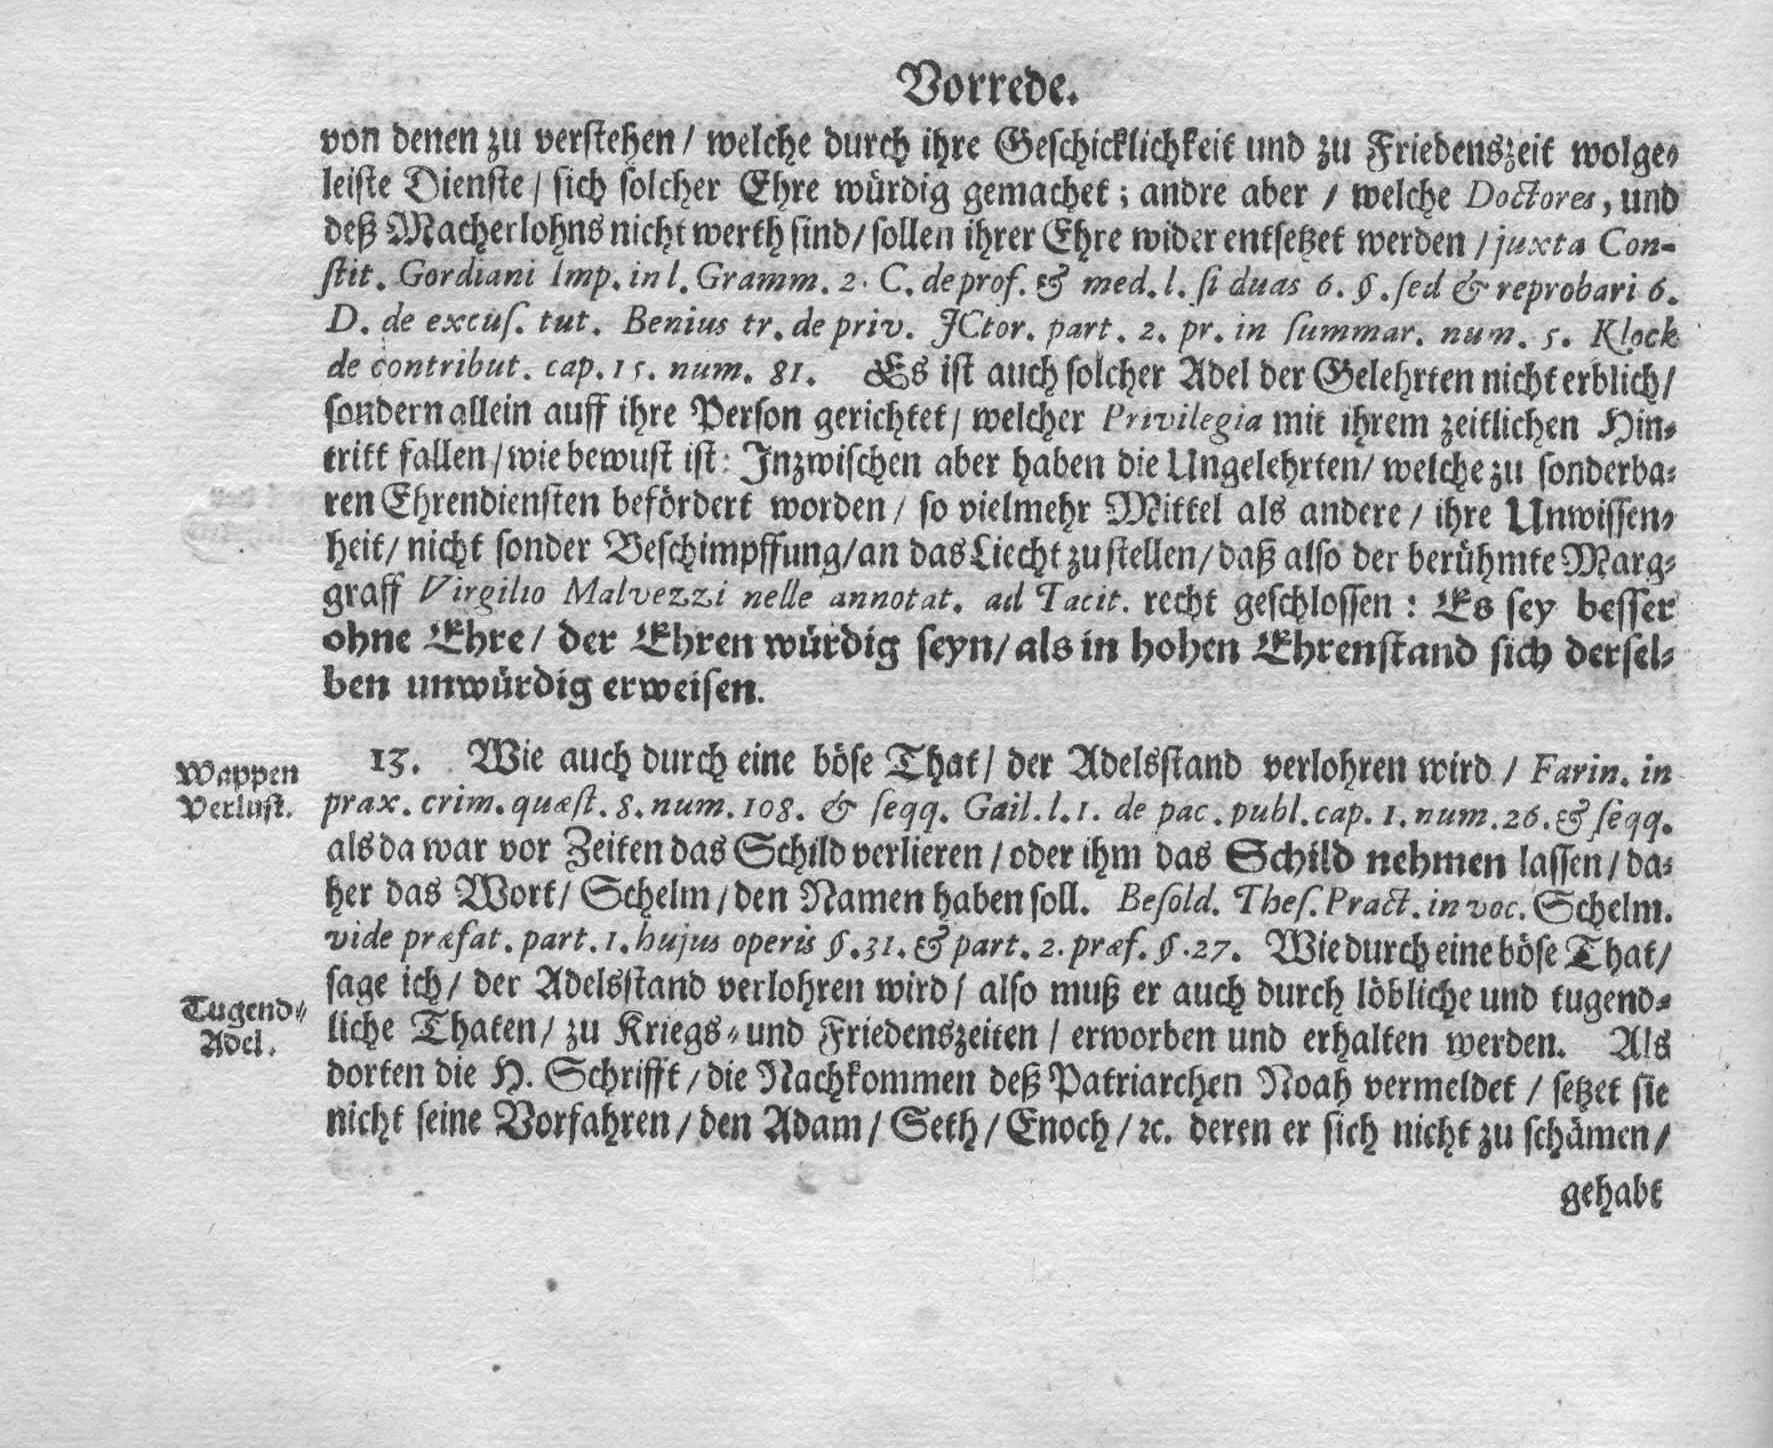 Vorrede.
von denen zu verstehen / welche durch ihre Geschicklichkeit und zu Friedenszeit wolge-
leiste Dienste / sich solcher Ehre würdig gemachet; andre aber / welche Doctores, und
deß Macherlohns nicht werth sind / sollen ihrer Ehre wider entsetzet werden / juxta Con-
stit. Gordiani Imp. in l. Gramm. 2. C. de prof. & med. l. si duas 6. §. sed & reprobari 6.
D. de excus. tut. Benius tr. de priv. JCtor. part. 2. pr. in summar. num. 5. Klock
de contribut. cap. 15. num. 81. Es ist auch solcher Adel der Gelehrten nicht erblich /
sondern allein auff ihre Person gerichtet / welcher Privilegia mit ihrem zeitlichen Hin-
tritt fallen / wie bewust ist: Inzwischen aber haben die Ungelehrten / welche zu sonderba-
ren Ehrendiensten befördert worden / so vielmehr Mittel als andere / ihre Unwissen-
heit / nicht sonder Beschimpffung / an das Liecht zu stellen / daß also der berühmte Marg-
graff Virgilio Malvezzi nelle annotat. ad Tacit. recht geschlossen: Es sey besser
ohne Ehre / der Ehren würdig seyn / als in hohen Ehrenstand sich dersel-
ben unwürdig erweisen.
Wappen
Verlust.
13. Wie auch durch eine böse That / der Adelsstand verlohren wird / Farin. in
prax. crim. quæst. 8. num. 108. & seqq. Gail. l. 1. de pac. publ. cap. 1. num. 26. & seqq.
als da war vor Zeiten das Schild verlieren / oder ihm das Schild nehmen lassen / da-
her das Wort / Schelm / den Namen haben soll. Besold. Thes. Pract. in voc. Schelm.
vide præfat. part. 1. hujus operis §. 31. & part. 2. præf. §. 27. Wie durch eine böse That /
sage ich / der Adelsstand verlohren wird / also muß er auch durch löbliche und tugend-
Tugend-
Adel.
liche Thaten / zu Kriegs- und Friedenszeiten / erworben und erhalten werden. Als
dorten die H. Schrifft / die Nachkommen deß Patriarchen Noah vermeldet / setzet sie
nicht seine Vorfahren / den Adam / Seth / Enoch / ꝛc. deren er sich nicht zu schämen /
gehabt